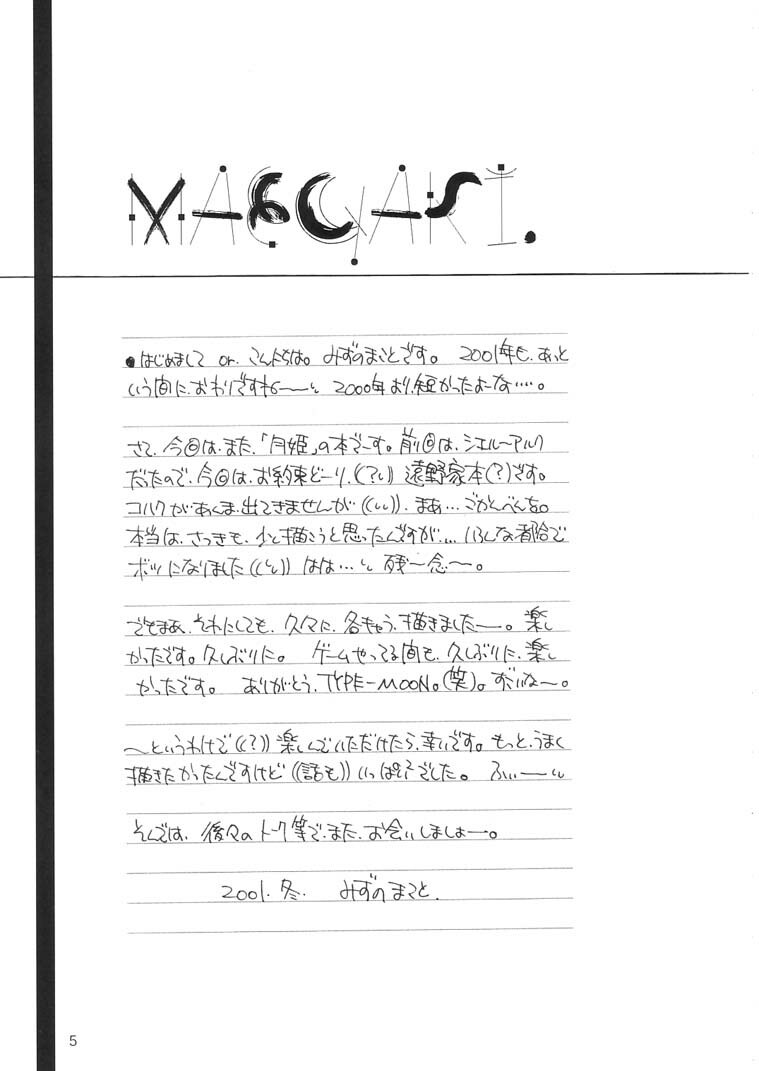 MAEGAKI.
●はじめまして or. こんにちは。みずのまことです。2001年も、あっと
いう間に、おわりですね〜〜い 2000年より、短かったよーな….。
さて、今回は、また、「月姫」の本でーす。前回は、シエルーアルク
だたので、今回は、お約束どーり、(?い) 遠野家本(?)です。
コハクがあんま、出てきませんが((いい))、まあ…ごかんべんを。
本当は、さっきも、少と描こうと思ったんですが…いろんな都合で
ボツになりました((い)) はは…い 残〜念〜。
でもまあ、それにしても、久々に、各キャラ、描きましたー。楽し
かったです。久しぶりに。ゲームやってる間も、久しぶりに、楽し
かったです。ありがとう、TYPE-MOON。(笑)。すごいな〜。
〜というわけで((?)) 楽しんでいただけたら、幸いです。もっと、うまく
描きたかったんですけど((話も)) いっぱいでした。ふぃーーい
そんでは、後々のトーク等で、また、お会いしましょー。
2001. 冬. みずの まこと.
5